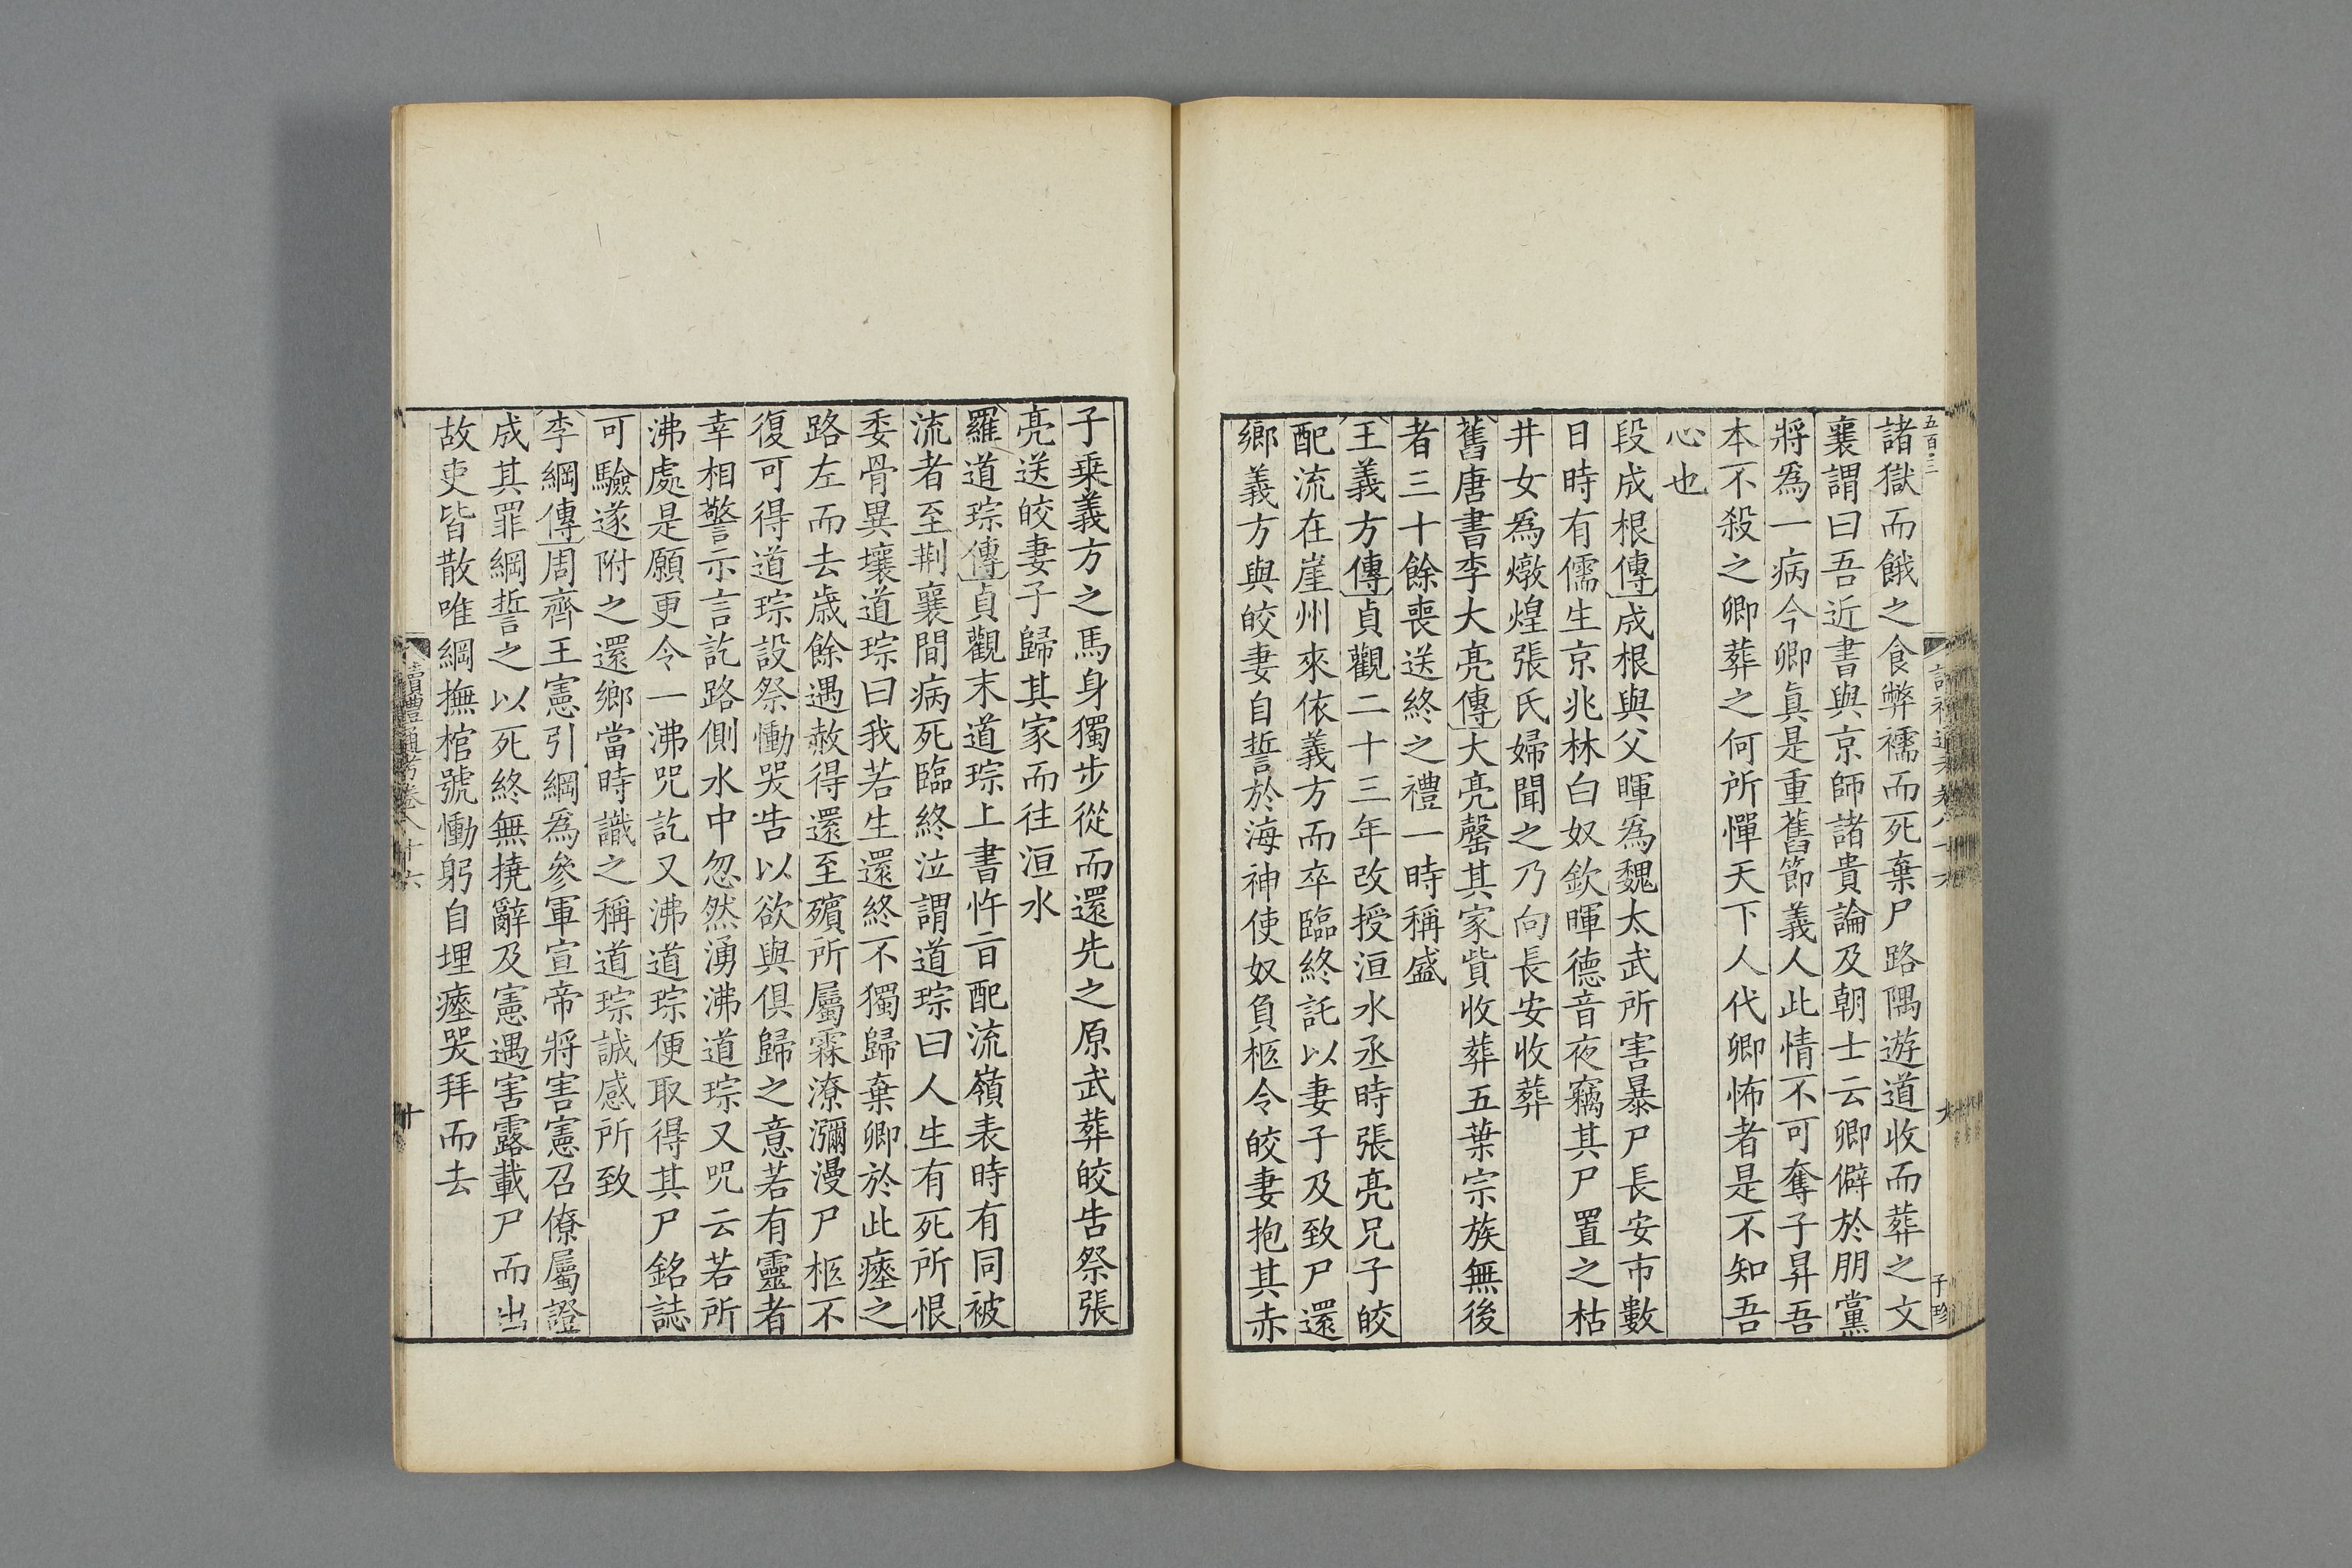 五百三
諸獄而餓之食弊襦而死棄尸路隅遊道收而葬之文
襄謂曰吾近書與京師諸貴論及朝士云卿僻於朋黨
將爲一病今卿眞是重舊節義人此情不可奪子昇吾
本不殺之卿葬之何所憚天下人代卿怖者是不知吾
心也
段成根傳成根與父暉爲魏太武所害暴尸長安市數
日時有儒生京兆林白奴欽暉德音夜竊其尸置之枯
井女爲燉煌張氏婦聞之乃向長安收葬
舊唐書李大亮傳大亮罄其家貲收葬五葉宗族無後
者三十餘喪送終之禮一時稱盛
王義方傳貞觀二十三年改授洹水丞時張亮兄子皎
配流在崖州來依義方而卒臨終託以妻子及致尸還
鄉義方與皎妻自誓於海神使奴負柩令皎妻抱其赤
子乗義方之馬身獨步從而還先之原武葬皎告祭張
亮送皎妻子歸其家而往洹水
羅道琮傳貞觀末道琮上書忤㫖配流嶺表時有同被
流者至荆襄間病死臨終泣謂道琮曰人生有死所恨
委骨異壤道琮曰我若生還終不獨歸棄卿於此瘞之
路左而去歳餘遇赦得還至殯所屬霖潦瀰漫尸柩不
復可得道琮設祭慟哭告以欲與俱歸之意若有靈者
幸相警示言訖路側水中忽然湧沸道琮又咒云若所
沸處是願更令一沸咒訖又沸道琮便取得其尸銘誌
可驗遂附之還鄉當時識之稱道琮誠感所致
李綱傳周齊王憲引綱爲參軍宣帝將害憲召僚屬證
成其罪綱誓之以死終無撓辭及憲遇害露載尸而出
故吏皆散唯綱撫棺號慟躬自埋瘞哭拜而去
讀禮通考卷八十六
十